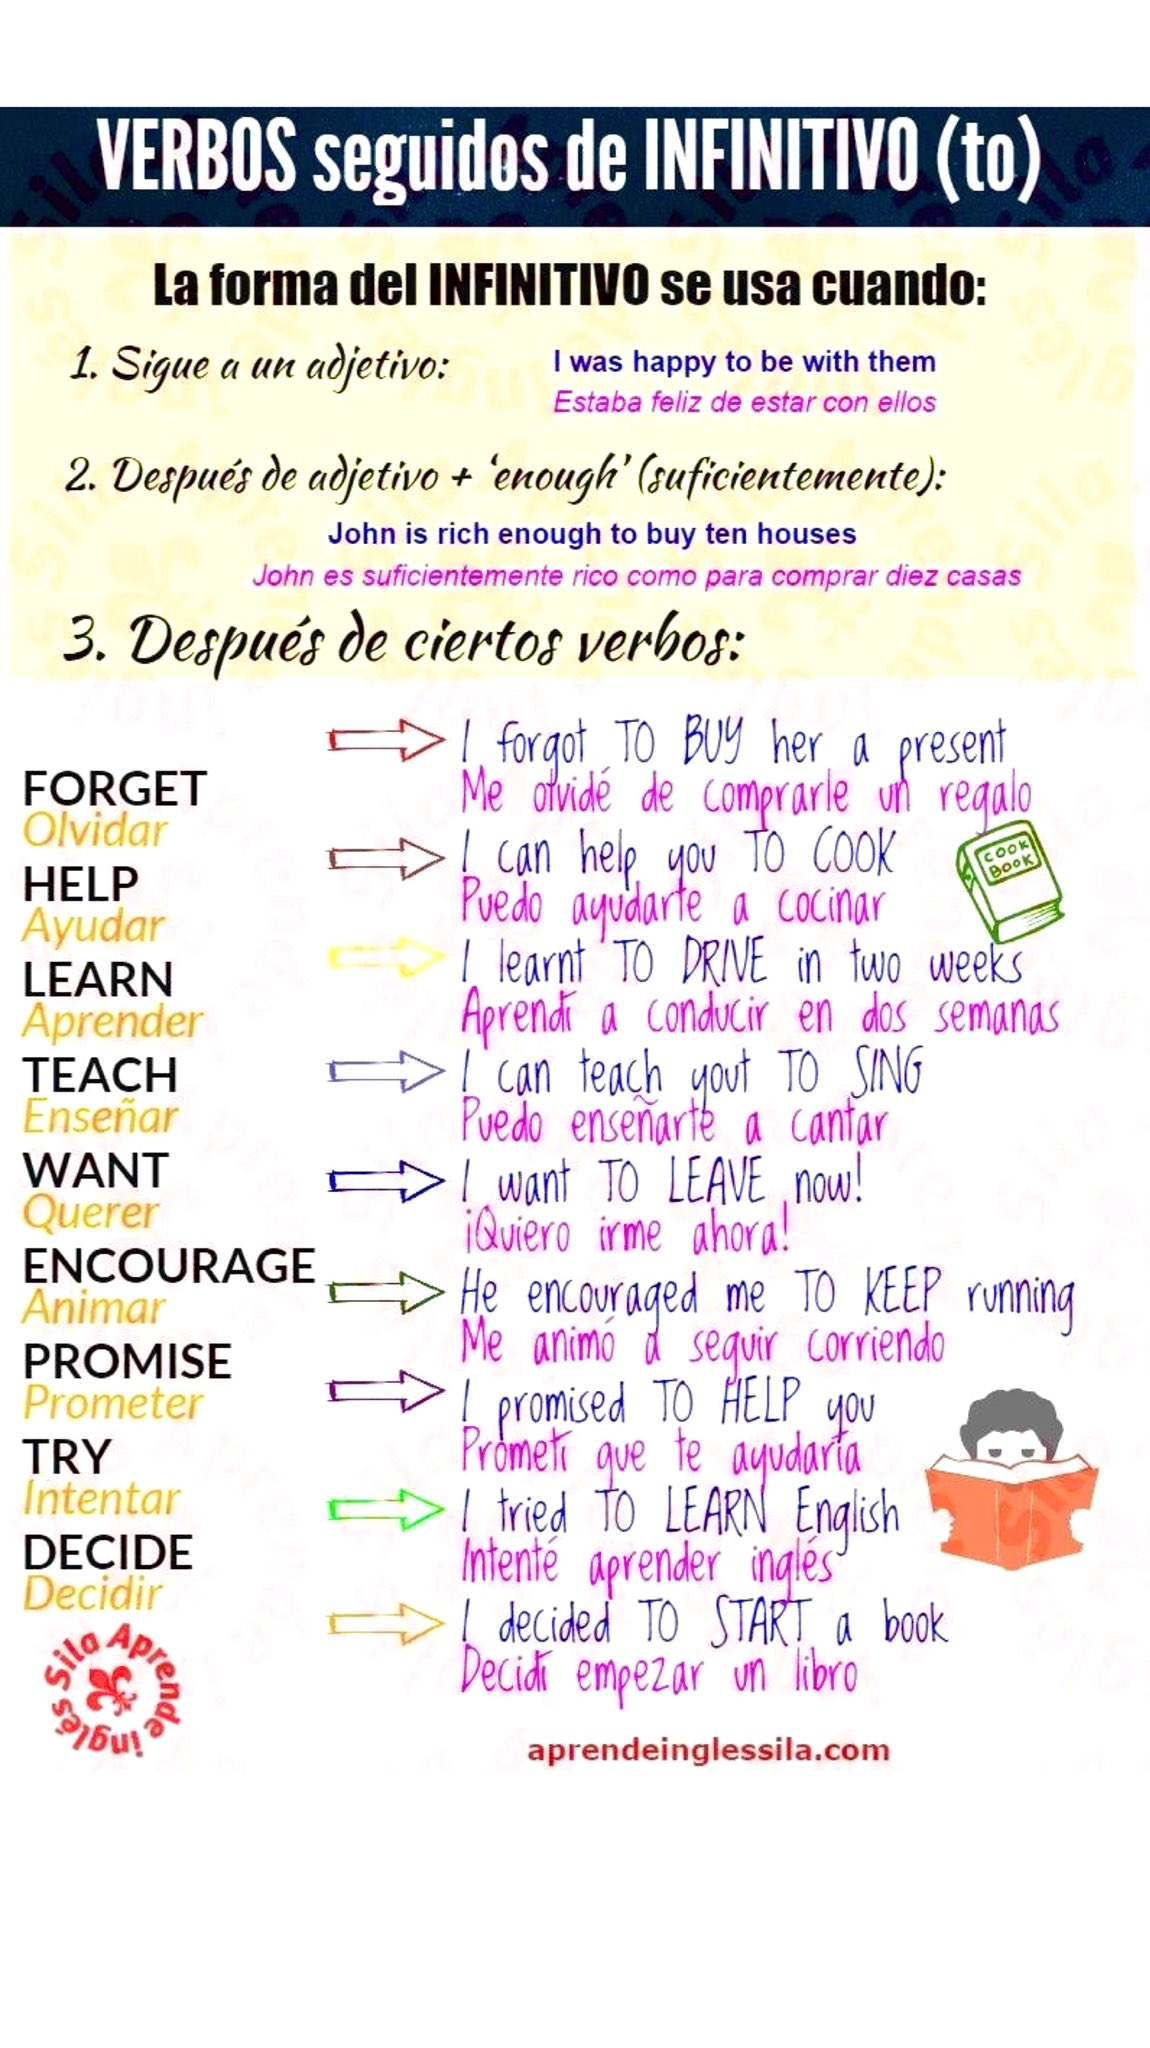 VERBOS seguidos de INFINITIVO (to)
La forma del INFINITIVO se usa cuando:
1. Sigue a un adjetivo:
I was happy to be with them
Estaba feliz de estar con ellos
2. Después de adjetivo + ‘enough’ (suficientemente):
John is rich enough to buy ten houses
John es suficientemente rico como para comprar diez casas
3. Después de ciertos verbos:
FORGET
Olvidar
HELP
Ayudar
LEARN
Aprender
TEACH
Enseñar
WANT
Querer
ENCOURAGE
Animar
PROMISE
Prometer
TRY
Intentar
DECIDE
Decidir
I forgot TO BUY her a present
Me olvidé de comprarle un regalo
I can help you TO COOK
Puedo ayudarte a cocinar
COOK
BOOK
I learnt TO DRIVE in two weeks
Aprendí a conducir en dos semanas
I can teach yout TO SING
Puedo enseñarte a cantar
I want TO LEAVE now!
¡Quiero irme ahora!
He encouraged me TO KEEP running
Me animó a seguir corriendo
I promised TO HELP you
Prometí que te ayudaría
I tried TO LEARN English
Intenté aprender inglés
I decided TO START a book
Decidí empezar un libro
Sila Aprende inglés
aprendeinglessila.com